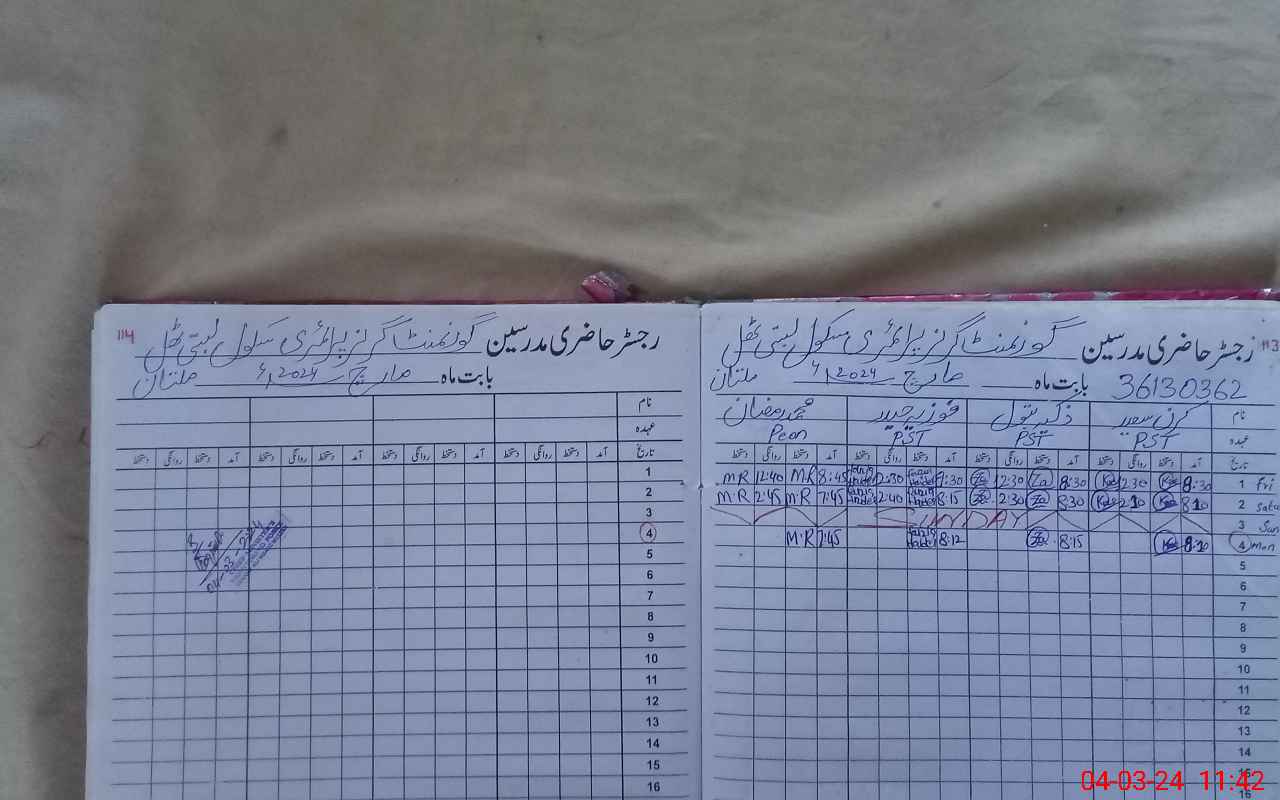 113
رجسٹر حاضری مدرسین گورنمنٹ گرلز پرائمری سکول بستی ٹھل
36130362 بابت ماہ مارچ 2024ء ملتان
نام کرن سعید ذکیہ بتول فوزیہ حیدر محمد رمضان
عہدہ PST PST PST Peon
تاریخ آمد دستخط روانگی دستخط آمد دستخط روانگی دستخط آمد دستخط روانگی دستخط آمد دستخط روانگی دستخط
1 Fri 8:30 2:30 8:30 Za 12:30 Za 7:30 2:30 8:45 M.R 12:40 M.R
2 Sat 8:10 2:10 8:30 Za 2:30 Za 8:15 2:40 7:45 M.R 2:45 M.R
3 Sun SUNDAY
4 Mon 8:10 8:15 Za 8:12 7:45 M.R
5
6
7
8
9
10
11
12
13
14
15
16
114
رجسٹر حاضری مدرسین گورنمنٹ گرلز پرائمری سکول بستی ٹھل
بابت ماہ مارچ 2024ء ملتان
نام
عہدہ
تاریخ آمد دستخط روانگی دستخط آمد دستخط روانگی دستخط آمد دستخط روانگی دستخط آمد دستخط روانگی دستخط
1
2
3
4
5
6
7
8
9
10
11
12
13
14
15
16
04-03-24 11:42